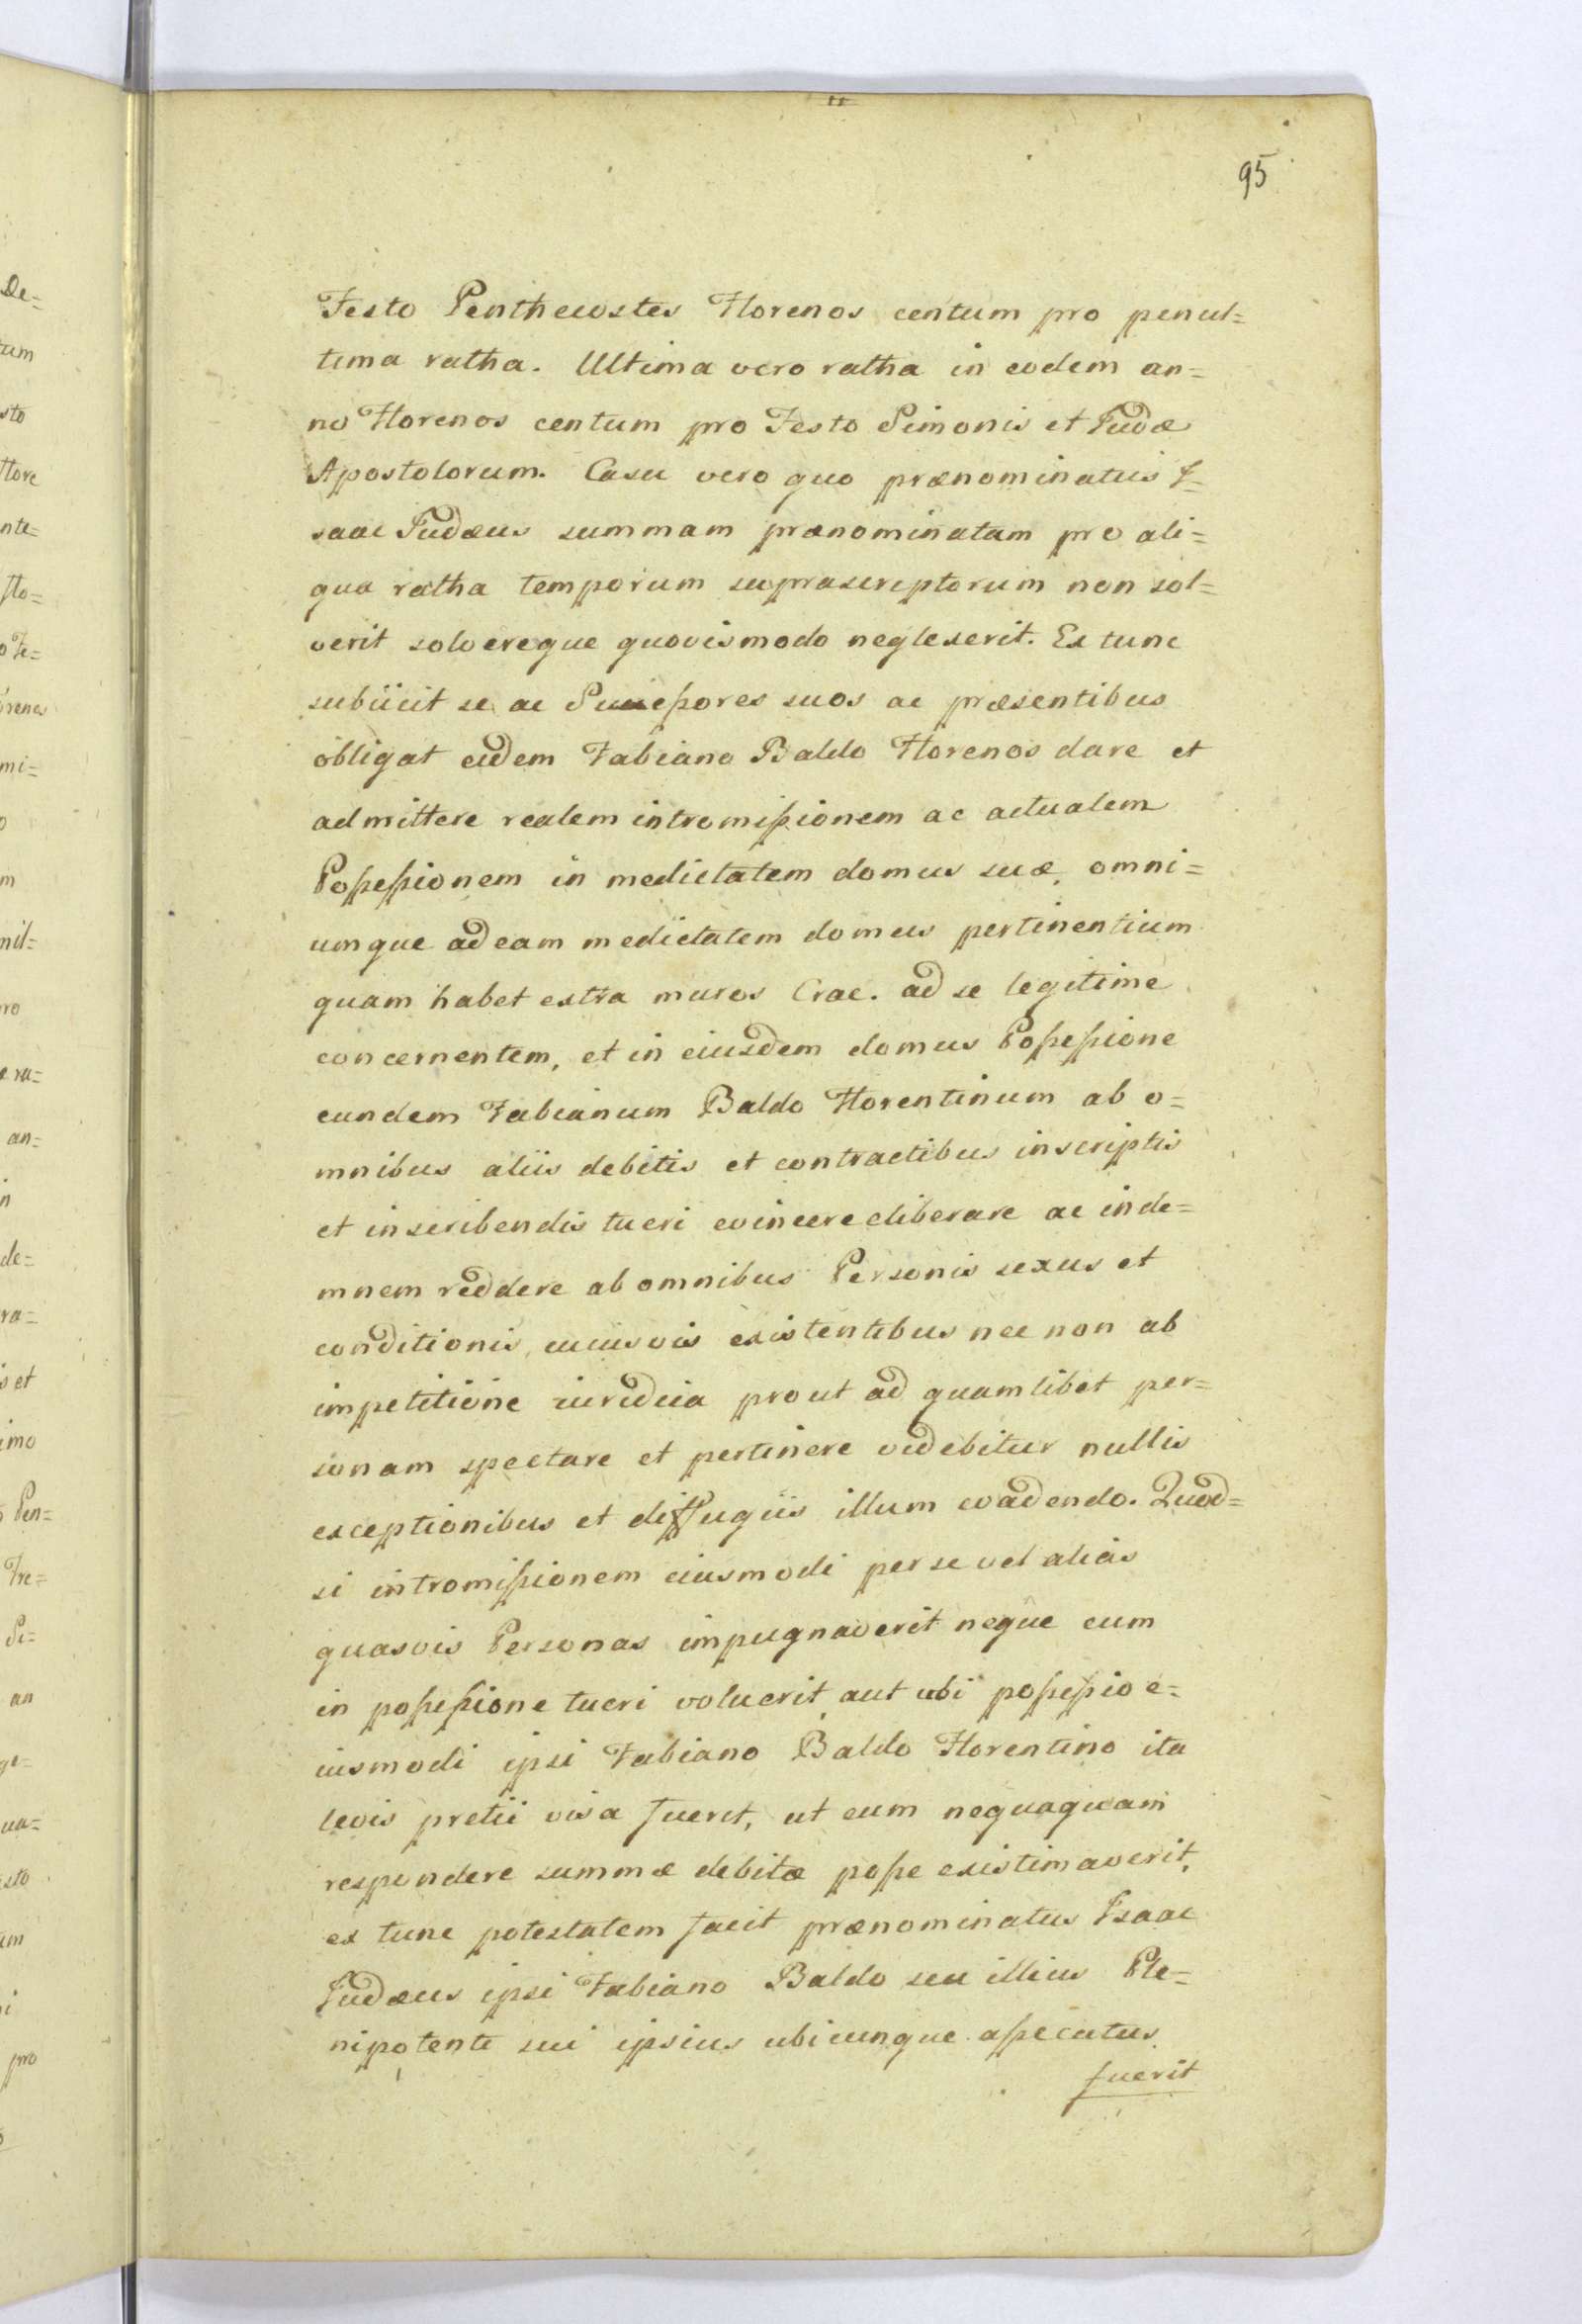 95
Festo Penthecostes Florenos centum pro penul=
tima ratha. Ultima vero ratha in eodem an=
no Florenos centum pro Festo Simonis et Judæ
Apostolorum. Casu vero quo prænominatus I=
saac Judæus summam prænominatam pro ali=
qua ratha temporum suprascriptorum non sol=
verit solvereque quovismodo neglexerit. Ex tunc
subiicit se ac Successores suos ac præsentibus
obligat eidem Fabiano Baldo Florenos dare et
admittere realem intromissionem ac actualem
Possessionem in medietatem domus suæ, omni=
umque ad eam medietatem domus pertinentium
quam habet extra muros Crac. ad se legitime
concernentem, et in eiusdem domus Possessione
eundem Fabianum Baldo Florentinum ab o=
mnibus aliis debitis et contractibus inscriptis
et inscribendis tueri evincere eliberare ac inde=
mnem reddere ab omnibus Personis sexus et
conditionis cuiusvis existentibus nec non ab
impetitione iuridica prout ad quamlibet per=
sonam spectare et pertinere videbitur nullis
exceptionibus et diffugiis illum evadendo. Quod=
si intromissionem eiusmodi per se vel alias
quasvis Personas impugnaverit neque eum
in possessione tueri voluerit aut ubi possessio e=
iusmodi ipsi Fabiano Baldo Florentino ita
levis pretii visa fuerit, ut eum nequaquam
respondere summæ debitæ posse existimaverit,
ex tunc potestatem facit prænominatus Isaac
Judæus ipsi Fabiano Baldo seu illius Ple=
nipotente sui ipsius ubicunque assecutus
fuerit
De=
tum
sto
flore
nte=
flo=
o Fe=
orenos
mi=
o
m
nil=
ro
e ra=
an=
n
de=
ra=
is et
imo
o Pen=
Tre=
Si=
an
ge=
ua=
sto
um
i
pro